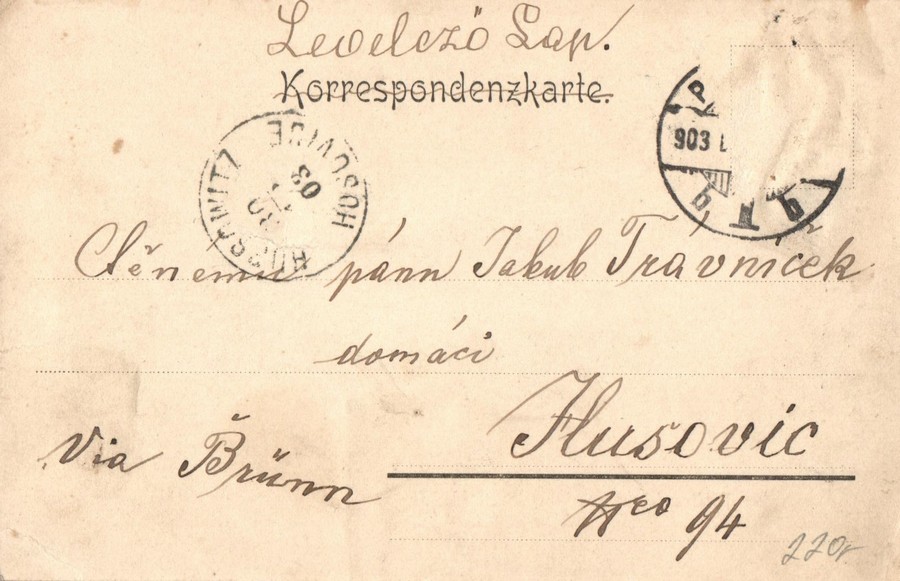 Levelező Lap.
Korrespondenzkarte.
903
HUSSOWITZ HUSOVICE
30
03
Ctěnemu pánu Jakub Trávníček
domácí
Husovic
Via Brünn
Nco 94
220,-